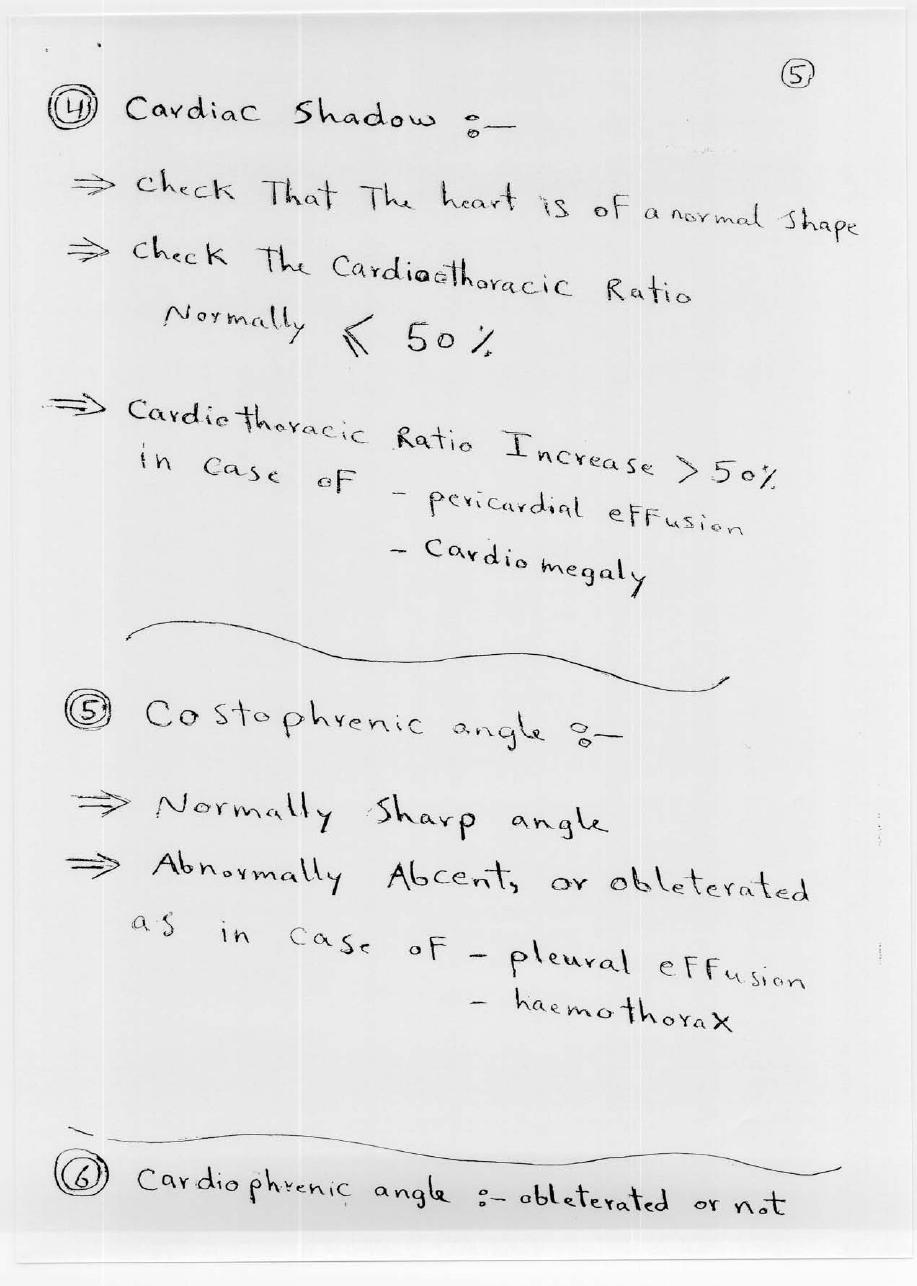 5
4 Cardiac Shadow :-
⇒ Check That The heart is of a normal shape
⇒ Check The Cardiothoracic Ratio
Normally ⩽ 50%
⇒ Cardiothoracic Ratio Increase > 50%
in case of - pericardial effusion
- Cardiomegaly
5 Costophrenic angle :-
⇒ Normally Sharp angle
⇒ Abnormally Abcent, or obleterated
as in case of - pleural effusion
- haemothorax
6 Cardiophrenic angle :- obleterated or not